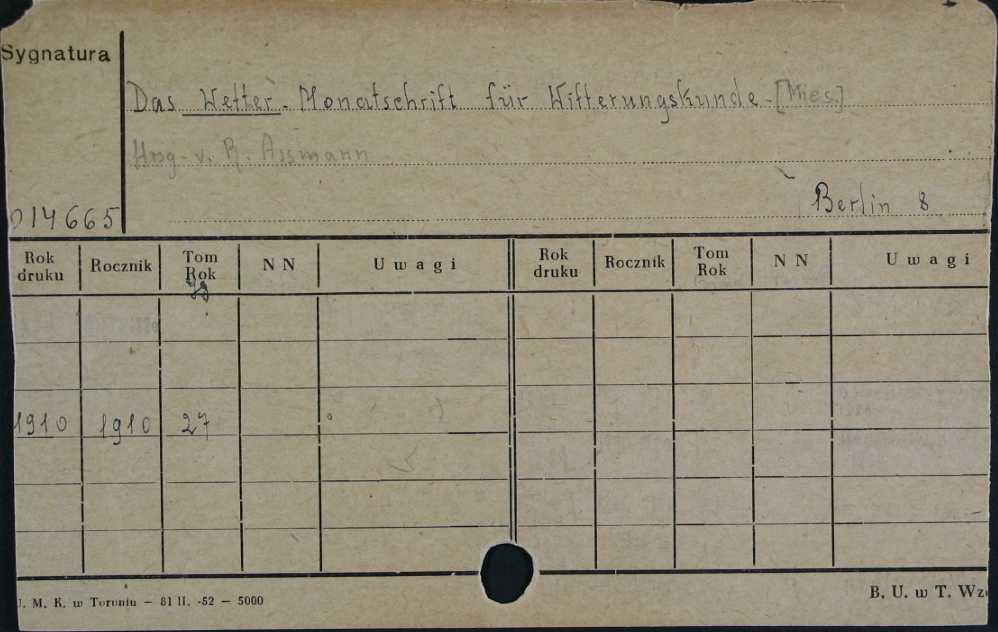 Sygnatura
Das Wetter. Monatschrift für Witterungskunde. [Mies.]
Hrsg. v. R. Assmann
Berlin 8
014665
Rok druku Rocznik Tom Rok NN Uwagi Rok druku Rocznik Tom Rok NN Uwagi
1910 1910 27
U. M. K. w Toruniu — 81 II. -52 — 5000
B. U. w T. Wzó